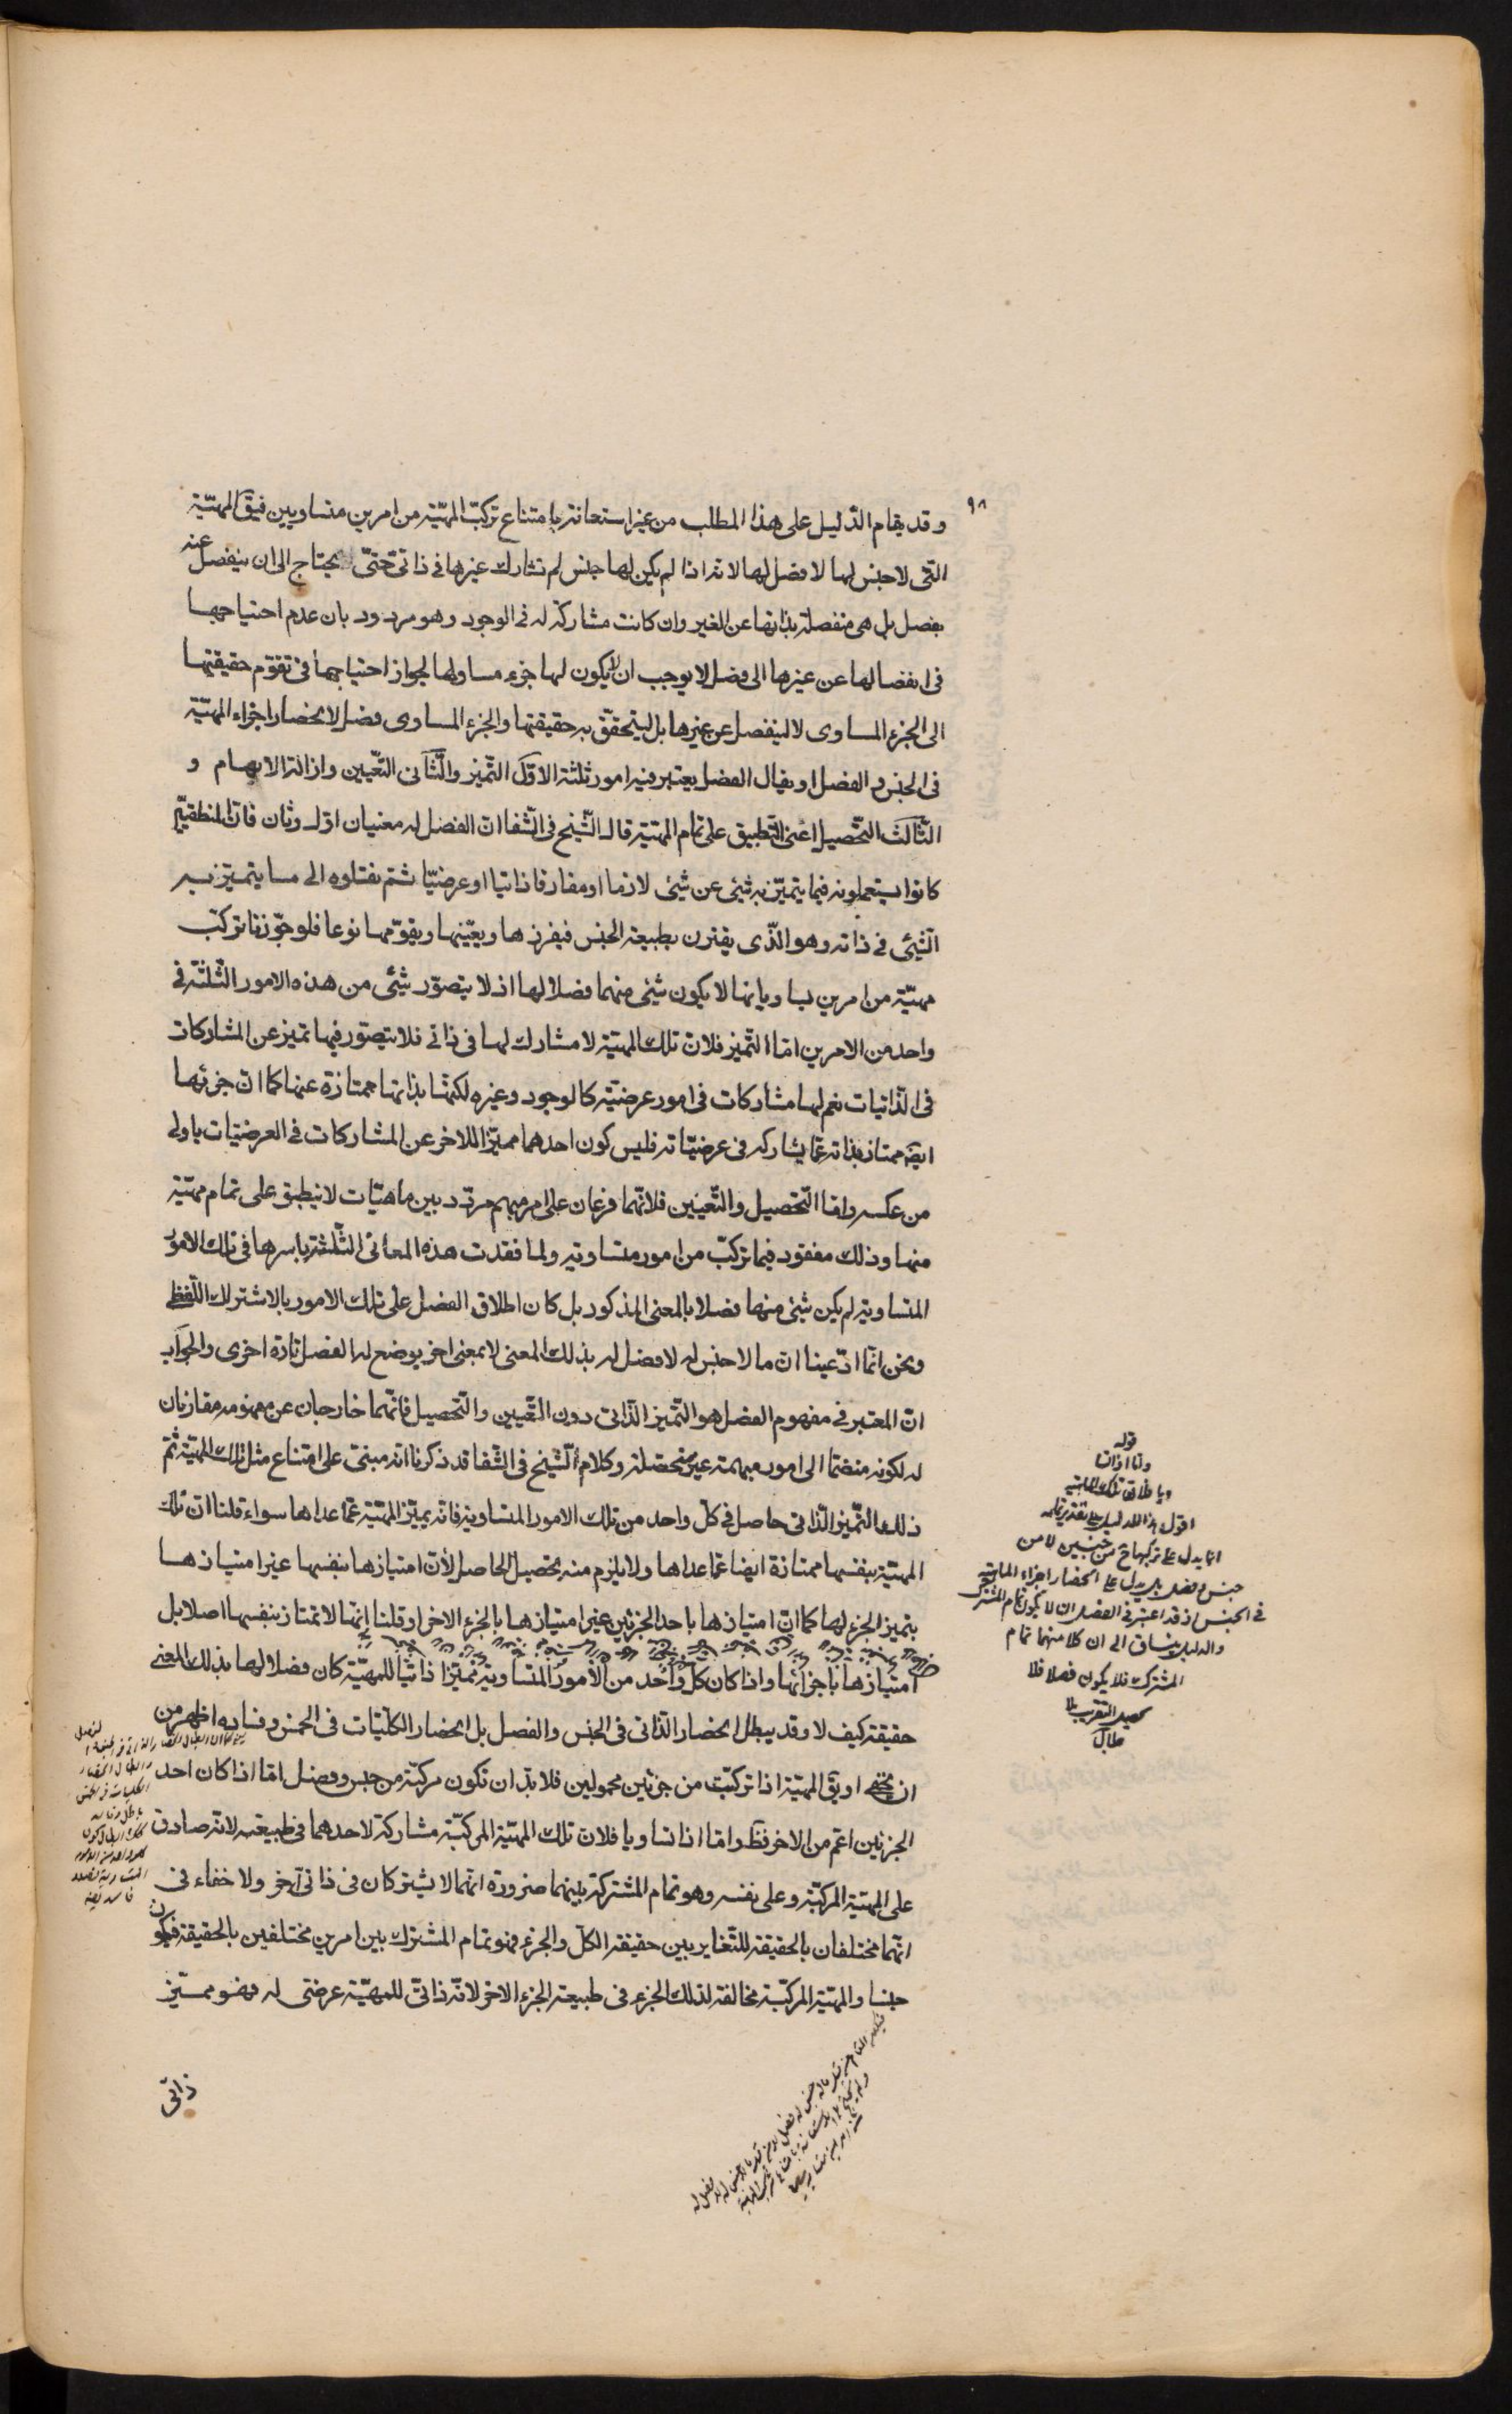 ٩٨
وقد يقام الدّليل على هذا المطلب من غير استعانة بامتناع تركّب المهيّة من امرين متساويين فيقَ المهيّة
التّى لا جنس لها لا فصل لها لانه اذا لم يكن لها جنس لم تشارك غيرها فى ذاتى حتّى يحتاج الى ان ينفصل عنه
بفصل بل هى منفصلة بذاتها عن الغير وان كانت مشاركة له فى الوجود وهو مردود بان عدم احتياجها
فى انفصالها عن غيرها الى فصل لا يوجب ان لا يكون لها جزء مساو لها لجواز احتياجها فى تقوّم حقيقتها
الى الجزء المساوى لا لينفصل عن غيرها بل ليتحقّق به حقيقتها والجزء المساوى فصل لانحصار اجزاء المهيّة
فى الجنس والفصل او يقال الفصل يعتبر فيه امور ثلثة الاوّل التّميز والثّانى التّعيين وازالة الابهام و
الثّالث التّحصيل اعنى التّطبيق على تمام المهيّة قال الشّيخ فى الشّفا انّ الفصل له معنيان اوّل وثان فانّ المنطقيّين
كانوا يستعملونه فيما يتميّز به شئ عن شئ لازما او مفارقا ذاتيا او عرضيّا ثم نقلوه الى ما يتميّز به
الشّئ فى ذاته وهو الّذى يقترن بطبيعة الجنس فيفرزها ويعيّنها ويقوّمها نوعا فلو جوّزنا تركّب
مهيّة من امرين يساويانها لا يكون شئ منهما فصلا لها اذ لا يتصوّر شئ من هذه الامور الثّلثة فى
واحد من الامرين امّا التّميز فلانّ تلك المهيّة لا مشارك لها فى ذاتى فلا يتصوّر فيها تميز عن المشاركات
فى الذّاتيات نعم لها مشاركات فى امور عرضيّة كالوجود وغيره لكنّها بذاتها ممتازة عنها كما انّ جزئها
ايضَ ممتاز بذاته عمّا يشاركه فى عرضيّاته فليس كون احدهما مميّزا للاخر عن المشاركات فى العرضيّات باولى
من عكسه وامّا التّحصيل والتّعيين فلانّهما فرعان على امر مبهم مردّد بين ماهيّات لا ينطبق على تمام مهيّة
منها وذلك مفقود فيما تركّب من امور متساوية ولما فقدت هذه المعانى الثّلثة باسرها فى تلك الامور
المتساوية لم يكن شئ منها فصلا بالمعنى المذكور بل كان اطلاق الفصل على تلك الامور بالاشتراك اللّفظى
ونحن انّما ادّعينا انّ ما لا جنس له لا فصل له بذلك المعنى لا بمعنى اخر يوضع له الفصل تارة اخرى والجواب
انّ المعتبر فى مفهوم الفصل هو التّميز الذّاتى دون التّعيين والتّحصيل فانّهما خارجان عن مفهومه مقارنان
له لكونه منضمّا الى امور مبهمة غير متحصّلة وكلام الشّيخ فى الشّفا قد ذكرنا انّه مبنىّ على امتناع مثل تلك المهيّة ثمّ
ذلك التّميز الذّاتى حاصل فى كلّ واحد من تلك الامور المتساوية فانّه يميّز المهيّة عمّا عداها سواء قلنا انّ تلك
المهيّة بنفسها ممتازة ايضا عمّا عداها ولا يلزم منه تحصيل الحاصل لأنّ امتيازها بنفسها غير امتيازها
بتميز الجزء لها كما انّ امتيازها باحد الجزئين غير امتيازها بالجزء الاخر او قلنا انّها لا تمتاز بنفسها اصلا بل
امتيازها باجزائها واذا كان كلّ واحد من الأمور المتساوية مميّزا ذاتيّا للمهيّة كان فصلا لها بذلك المعنى
حقيقة كيف لا وقد يبطل انحصار الذّاتى فى الجنس والفصل بل انحصار الكلّيّات فى الخمس وفساده اظهر من
ان يخفى او يقَ المهيّة اذا تركّبت من جزئين محمولين فلا بدّ ان تكون مركّبة من جنس وفصل امّا اذا كان احد
الجزئين اعّم من الاخر فظَ وامّا اذا تساويا فلانّ تلك المهيّة المركّبة مشاركة لاحدهما فى طبيعته لانّه صادق
على المهيّة المركّبة وعلى نفسه وهو تمام المشتركة بينهما ضرورة انّهما لا يشتركان فى ذاتى آخر ولا خفاء فى
انّهما مختلفان بالحقيقة للتّغاير بين حقيقة الكلّ والجزء فهو تمام المشترك بين امرين مختلفين بالحقيقة فيكون
جنسا والمهيّة المركّبة مخالفة لذلك الجزء فى طبيعة الجزء الاخر لانّه ذاتىّ للمهيّة عرضىّ له فهو مميّز
ذاتىّ
قوله
وامّا اذا تسا
ويا فلانّ تلك الماهيّة
اقول هذا الدليل على تقدير تمامه
انما يدل على تركبها من جنسين لا من
جنس وفصل بل يدل على انحصار اجزاء الماهية
فى الجنس اذ قد اعتبر فى الفصل ان لا يكون تمام المشترك
والدليل ينساق الى ان كلا منهما تمام
المشترك فلا يكون فصلا فلا